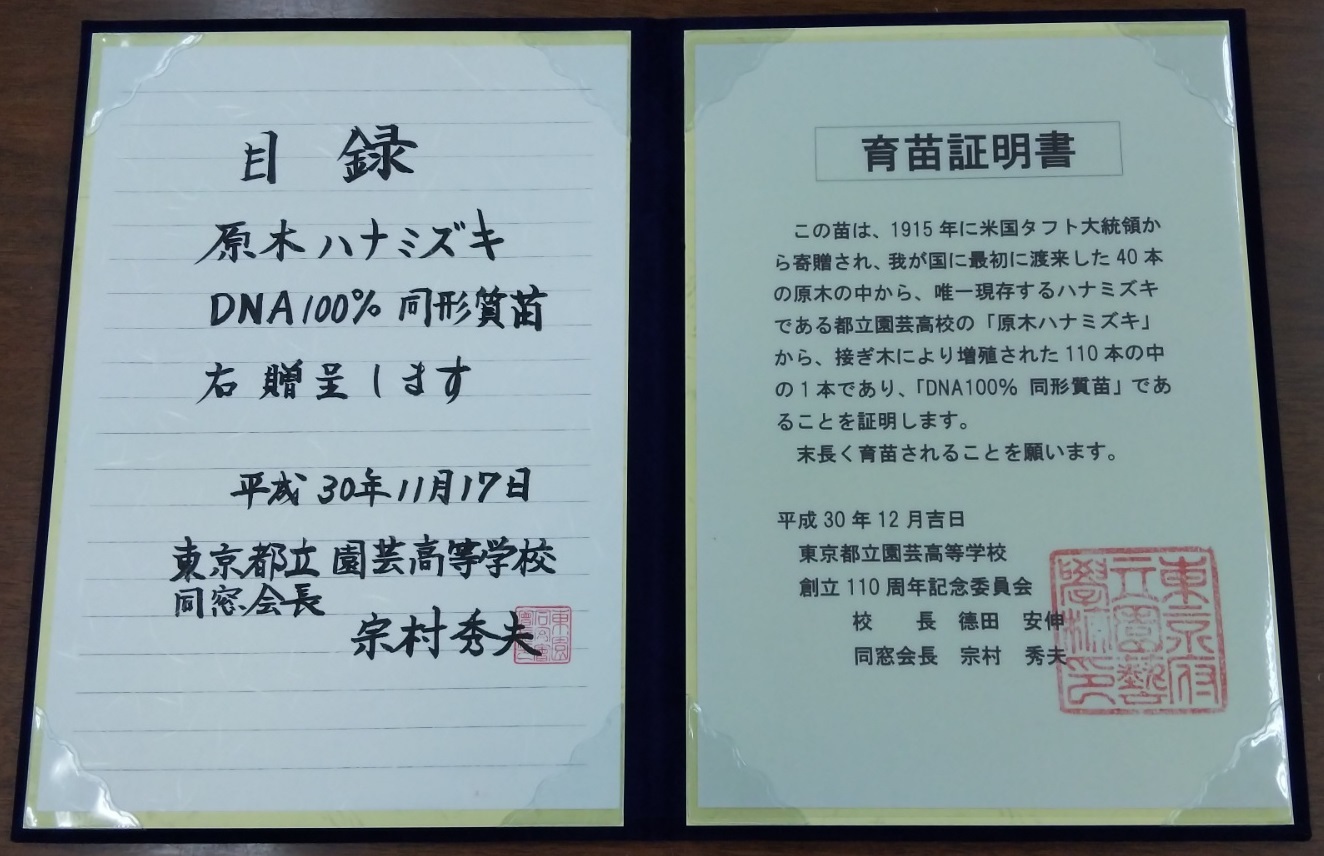 目録
原木ハナミズキ
DNA100% 同形質苗
右 贈呈します
平成30年11月17日
東京都立園芸高等学校
同窓会長
宗村秀夫
育苗証明書
この苗は、1915年に米国タフト大統領か
ら寄贈され、我が国に最初に渡来した40本
の原木の中から、唯一現存するハナミズキ
である都立園芸高校の「原木ハナミズキ」
から、接ぎ木により増殖された110本の中
の1本であり、「DNA100% 同形質苗」であ
ることを証明します。
末長く育苗されることを願います。
平成30年12月吉日
東京都立園芸高等学校
創立110周年記念委員会
校　　長　德田　安伸
同窓会長　宗村　秀夫
東京府
立園藝
學校印